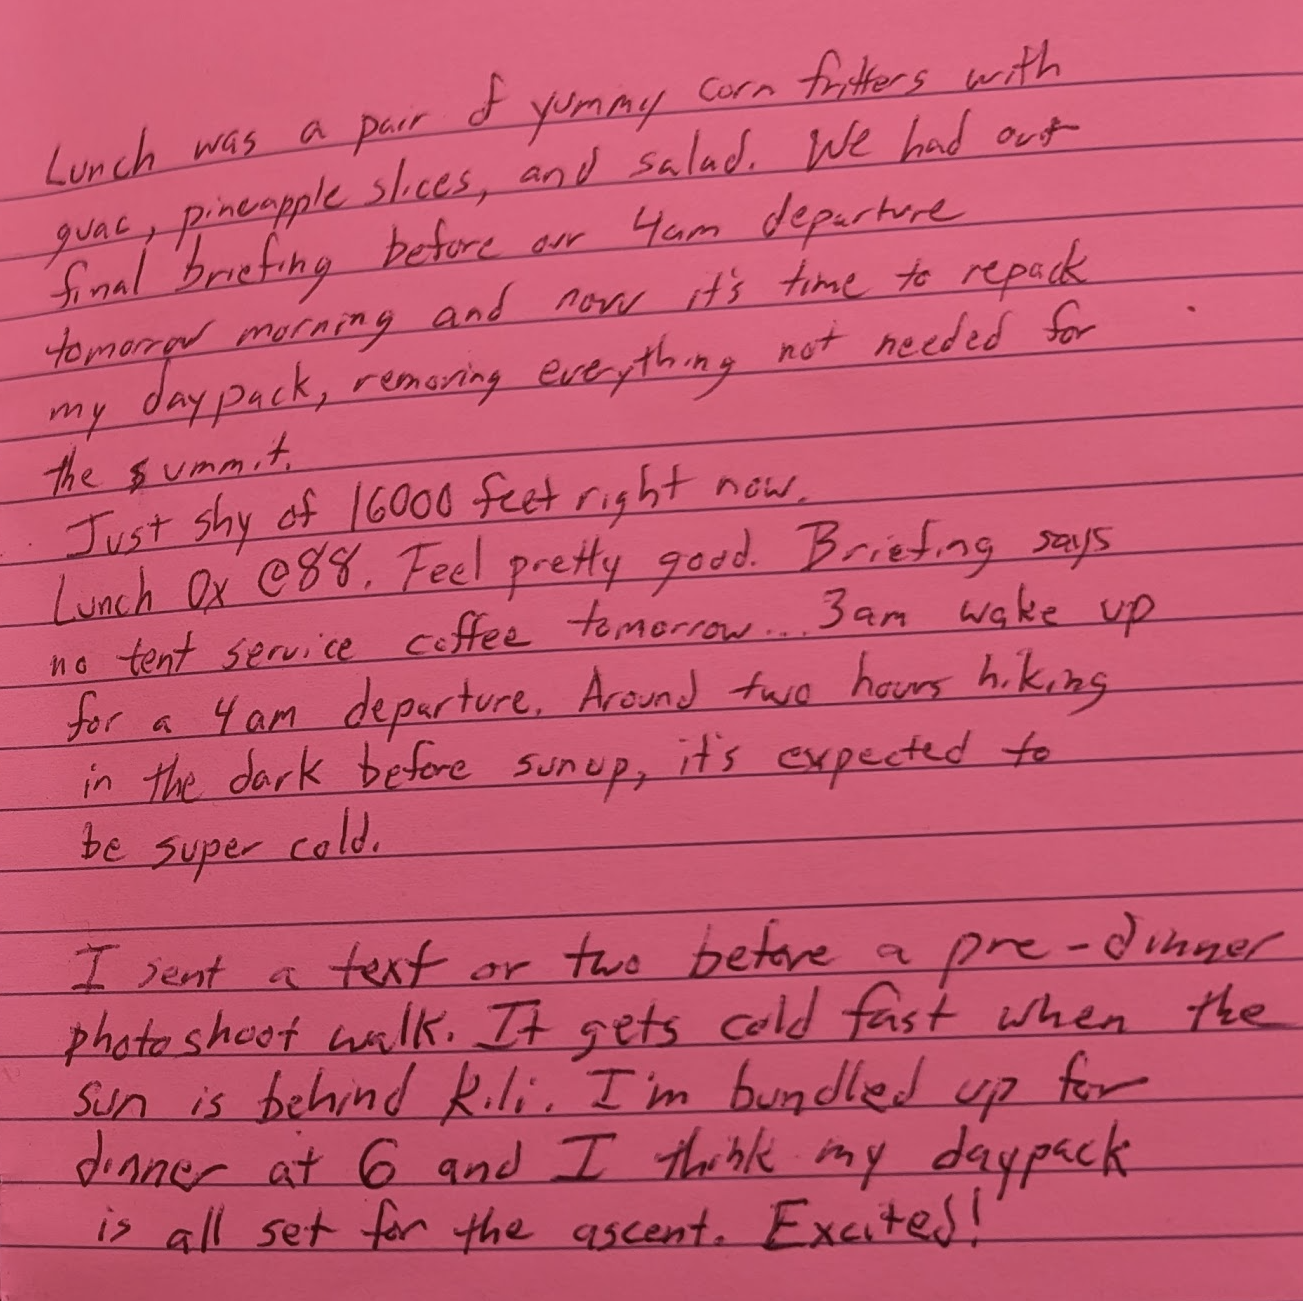 Lunch was a pair of yummy corn fritters with
guac, pineapple slices, and salad. We had out
final briefing before our 4am departure
tomorrow morning and now it's time to repack
my daypack, removing everything not needed for
the summit.
Just shy of 16000 feet right now.
Lunch Ox @88. Feel pretty good. Briefing says
no tent service coffee tomorrow... 3am wake up
for a 4am departure. Around two hours hiking
in the dark before sunup, it's expected to
be super cold.
I sent a text or two before a pre-dinner
photoshoot walk. It gets cold fast when the
sun is behind Kili. I'm bundled up for
dinner at 6 and I think my daypack
is all set for the ascent. Excited!